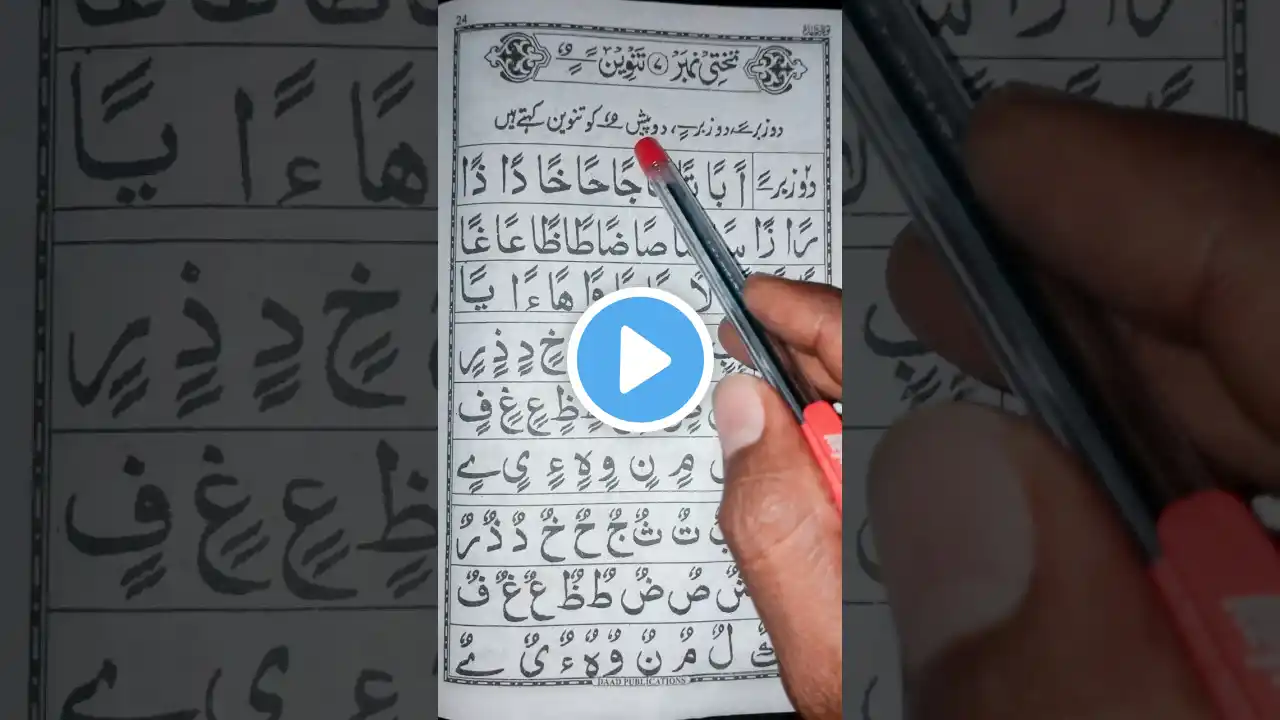 24
تختی نمبر ۷ تنوین ـًـٍـٌ
دو زبر ـً، دو زیر ـٍ، دو پیش ـٌ کو تنوین کہتے ہیں
دو زبر ـً اً بًا تًا جًا حًا خًا دًا ذًا
رًا زًا سًا صًا ضًا طًا ظًا عًا غًا
لًا وًا هًا ءًا يًا
خٍ دٍ ذٍ رٍ
ظٍ عٍ غٍ فٍ
مٍ نٍ وٍ هٍ ءٍ یٍ ےٍ
تٌ ثٌ جٌ حٌ خٌ دٌ ذٌ رٌ
شٌ صٌ ضٌ طٌ ظٌ عٌ غٌ فٌ
كٌ لٌ مٌ نٌ وٌ هٌ ءٌ یٌ ےٌ
DAAD PUBLICATIONS